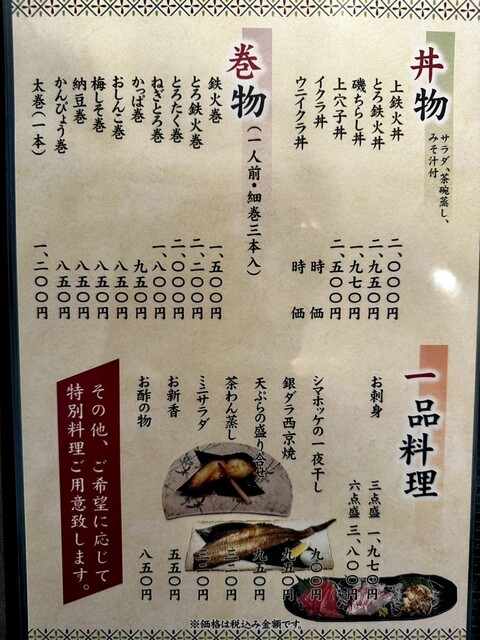 丼物
サラダ、茶碗蒸し、
みそ汁付
上鉄火丼 二、〇〇〇円
とろ鉄火丼 二、九五〇円
磯ちらし丼 一、九七〇円
上穴子丼 二、五〇〇円
イクラ丼 時価
ウニイクラ丼 時価
巻物(一人前・細巻三本入)
鉄火巻 一、五〇〇円
とろ鉄火巻 二、二〇〇円
とろたく巻 二、〇〇〇円
ねぎとろ巻 一、八〇〇円
かっぱ巻 九五〇円
おしんこ巻 八五〇円
梅しそ巻 八五〇円
納豆巻 八五〇円
かんぴょう巻 八五〇円
太巻(一本) 一、二〇〇円
一品料理
お刺身 三点盛 一、九七〇円
六点盛 三、八〇〇円
シマホッケの一夜干し 九〇〇円
銀ダラ西京焼 九五〇円
天ぷらの盛り合せ 九五〇円
茶わん蒸し
ミニサラダ
お新香 五五〇円
お酢の物 八五〇円
その他、ご希望に応じて
特別料理ご用意致します。
※価格は税込み金額です。